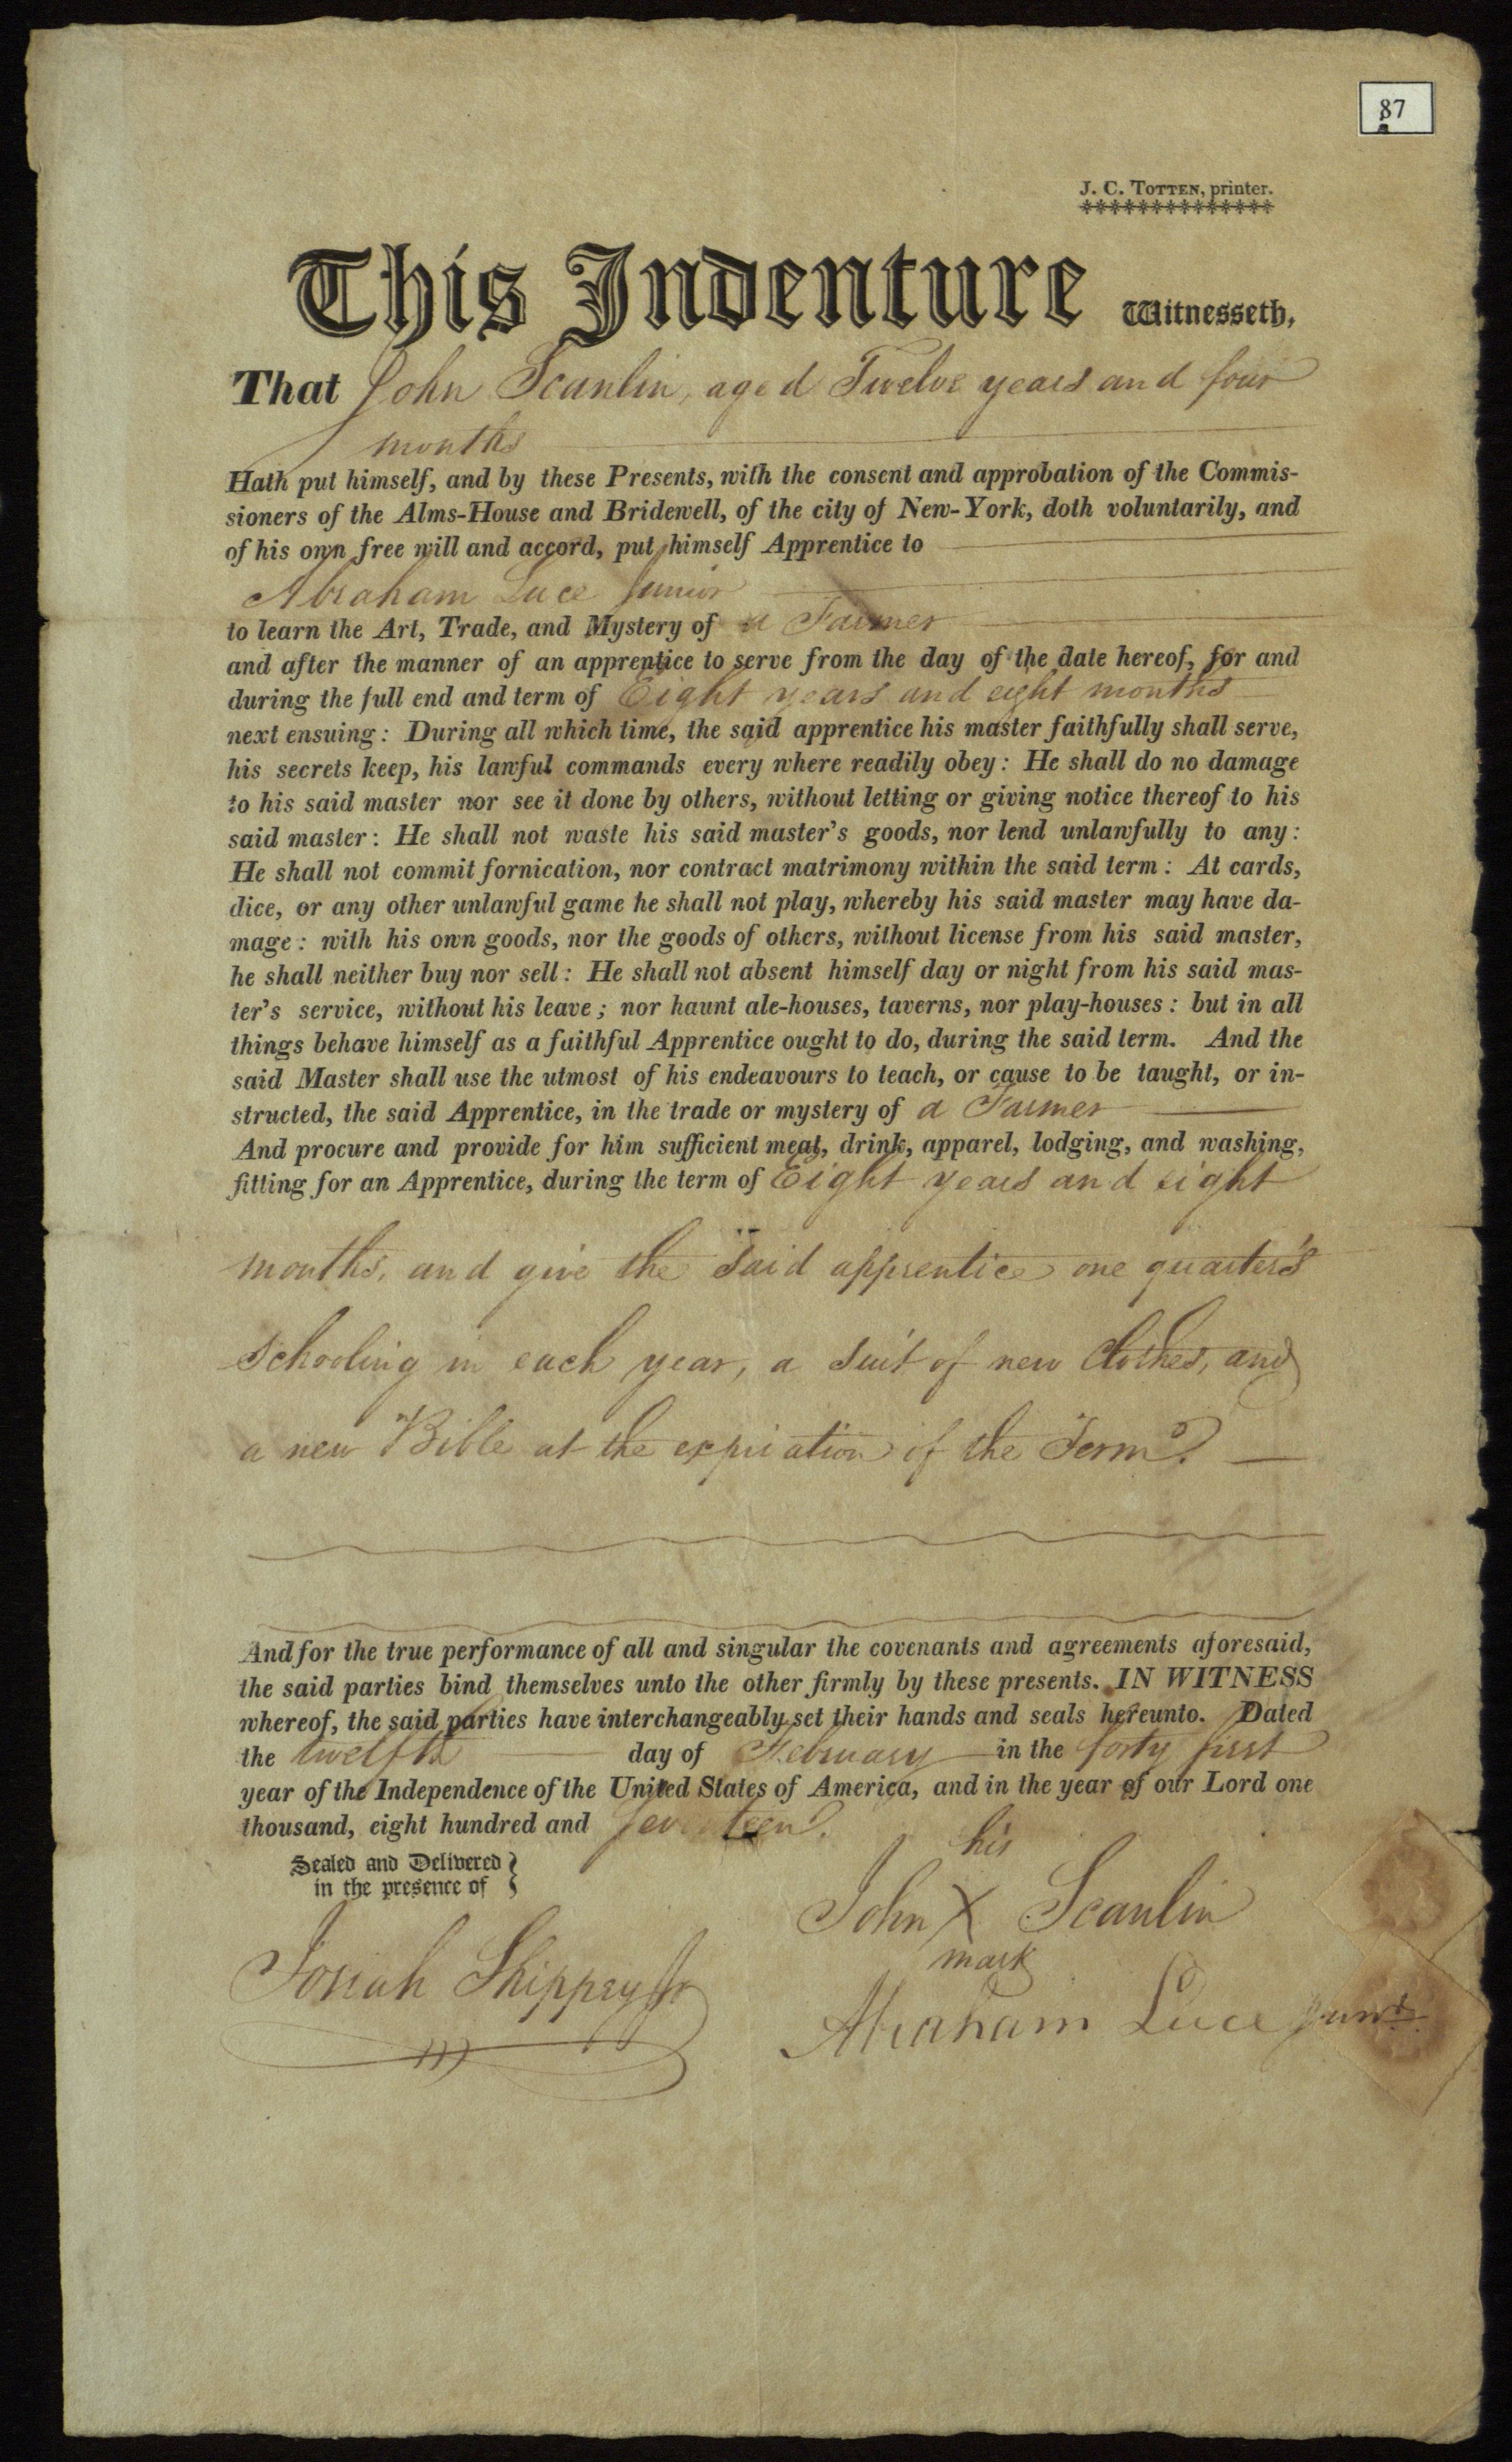 87
J. C. Totten, printer.
This Indenture Witnesseth,
That John Scanlin, aged Twelve years and four
months
Hath put himself, and by these Presents, with the consent and approbation of the Commis-
sioners of the Alms-House and Bridewell, of the city of New-York, doth voluntarily, and
of his own free will and accord, put himself Apprentice to
Abraham Luce Junior
to learn the Art, Trade, and Mystery of a Farmer
and after the manner of an apprentice to serve from the day of the date hereof, for and
during the full end and term of Eight years and eight months
next ensuing: During all which time, the said apprentice his master faithfully shall serve,
his secrets keep, his lawful commands every where readily obey: He shall do no damage
to his said master nor see it done by others, without letting or giving notice thereof to his
said master: He shall not waste his said master's goods, nor lend unlawfully to any:
He shall not commit fornication, nor contract matrimony within the said term: At cards,
dice, or any other unlawful game he shall not play, whereby his said master may have da-
mage: with his own goods, nor the goods of others, without license from his said master,
he shall neither buy nor sell: He shall not absent himself day or night from his said mas-
ter's service, without his leave; nor haunt ale-houses, taverns, nor play-houses: but in all
things behave himself as a faithful Apprentice ought to do, during the said term. And the
said Master shall use the utmost of his endeavours to teach, or cause to be taught, or in-
structed, the said Apprentice, in the trade or mystery of a Farmer
And procure and provide for him sufficient meat, drink, apparel, lodging, and washing,
fitting for an Apprentice, during the term of Eight years and eight
months, and give the said apprentice one quarter's
schooling in each year, a suit of new clothes, and
a new Bible at the expiration of the Term.
And for the true performance of all and singular the covenants and agreements aforesaid,
the said parties bind themselves unto the other firmly by these presents. IN WITNESS
whereof, the said parties have interchangeably set their hands and seals hereunto. Dated
the twelfth day of February in the forty first
year of the Independence of the United States of America, and in the year of our Lord one
thousand, eight hundred and Seventeen.
Sealed and Delivered
in the presence of
his
John X Scanlin
mark
Josiah Shippey Jr
Abraham Luce Junr.